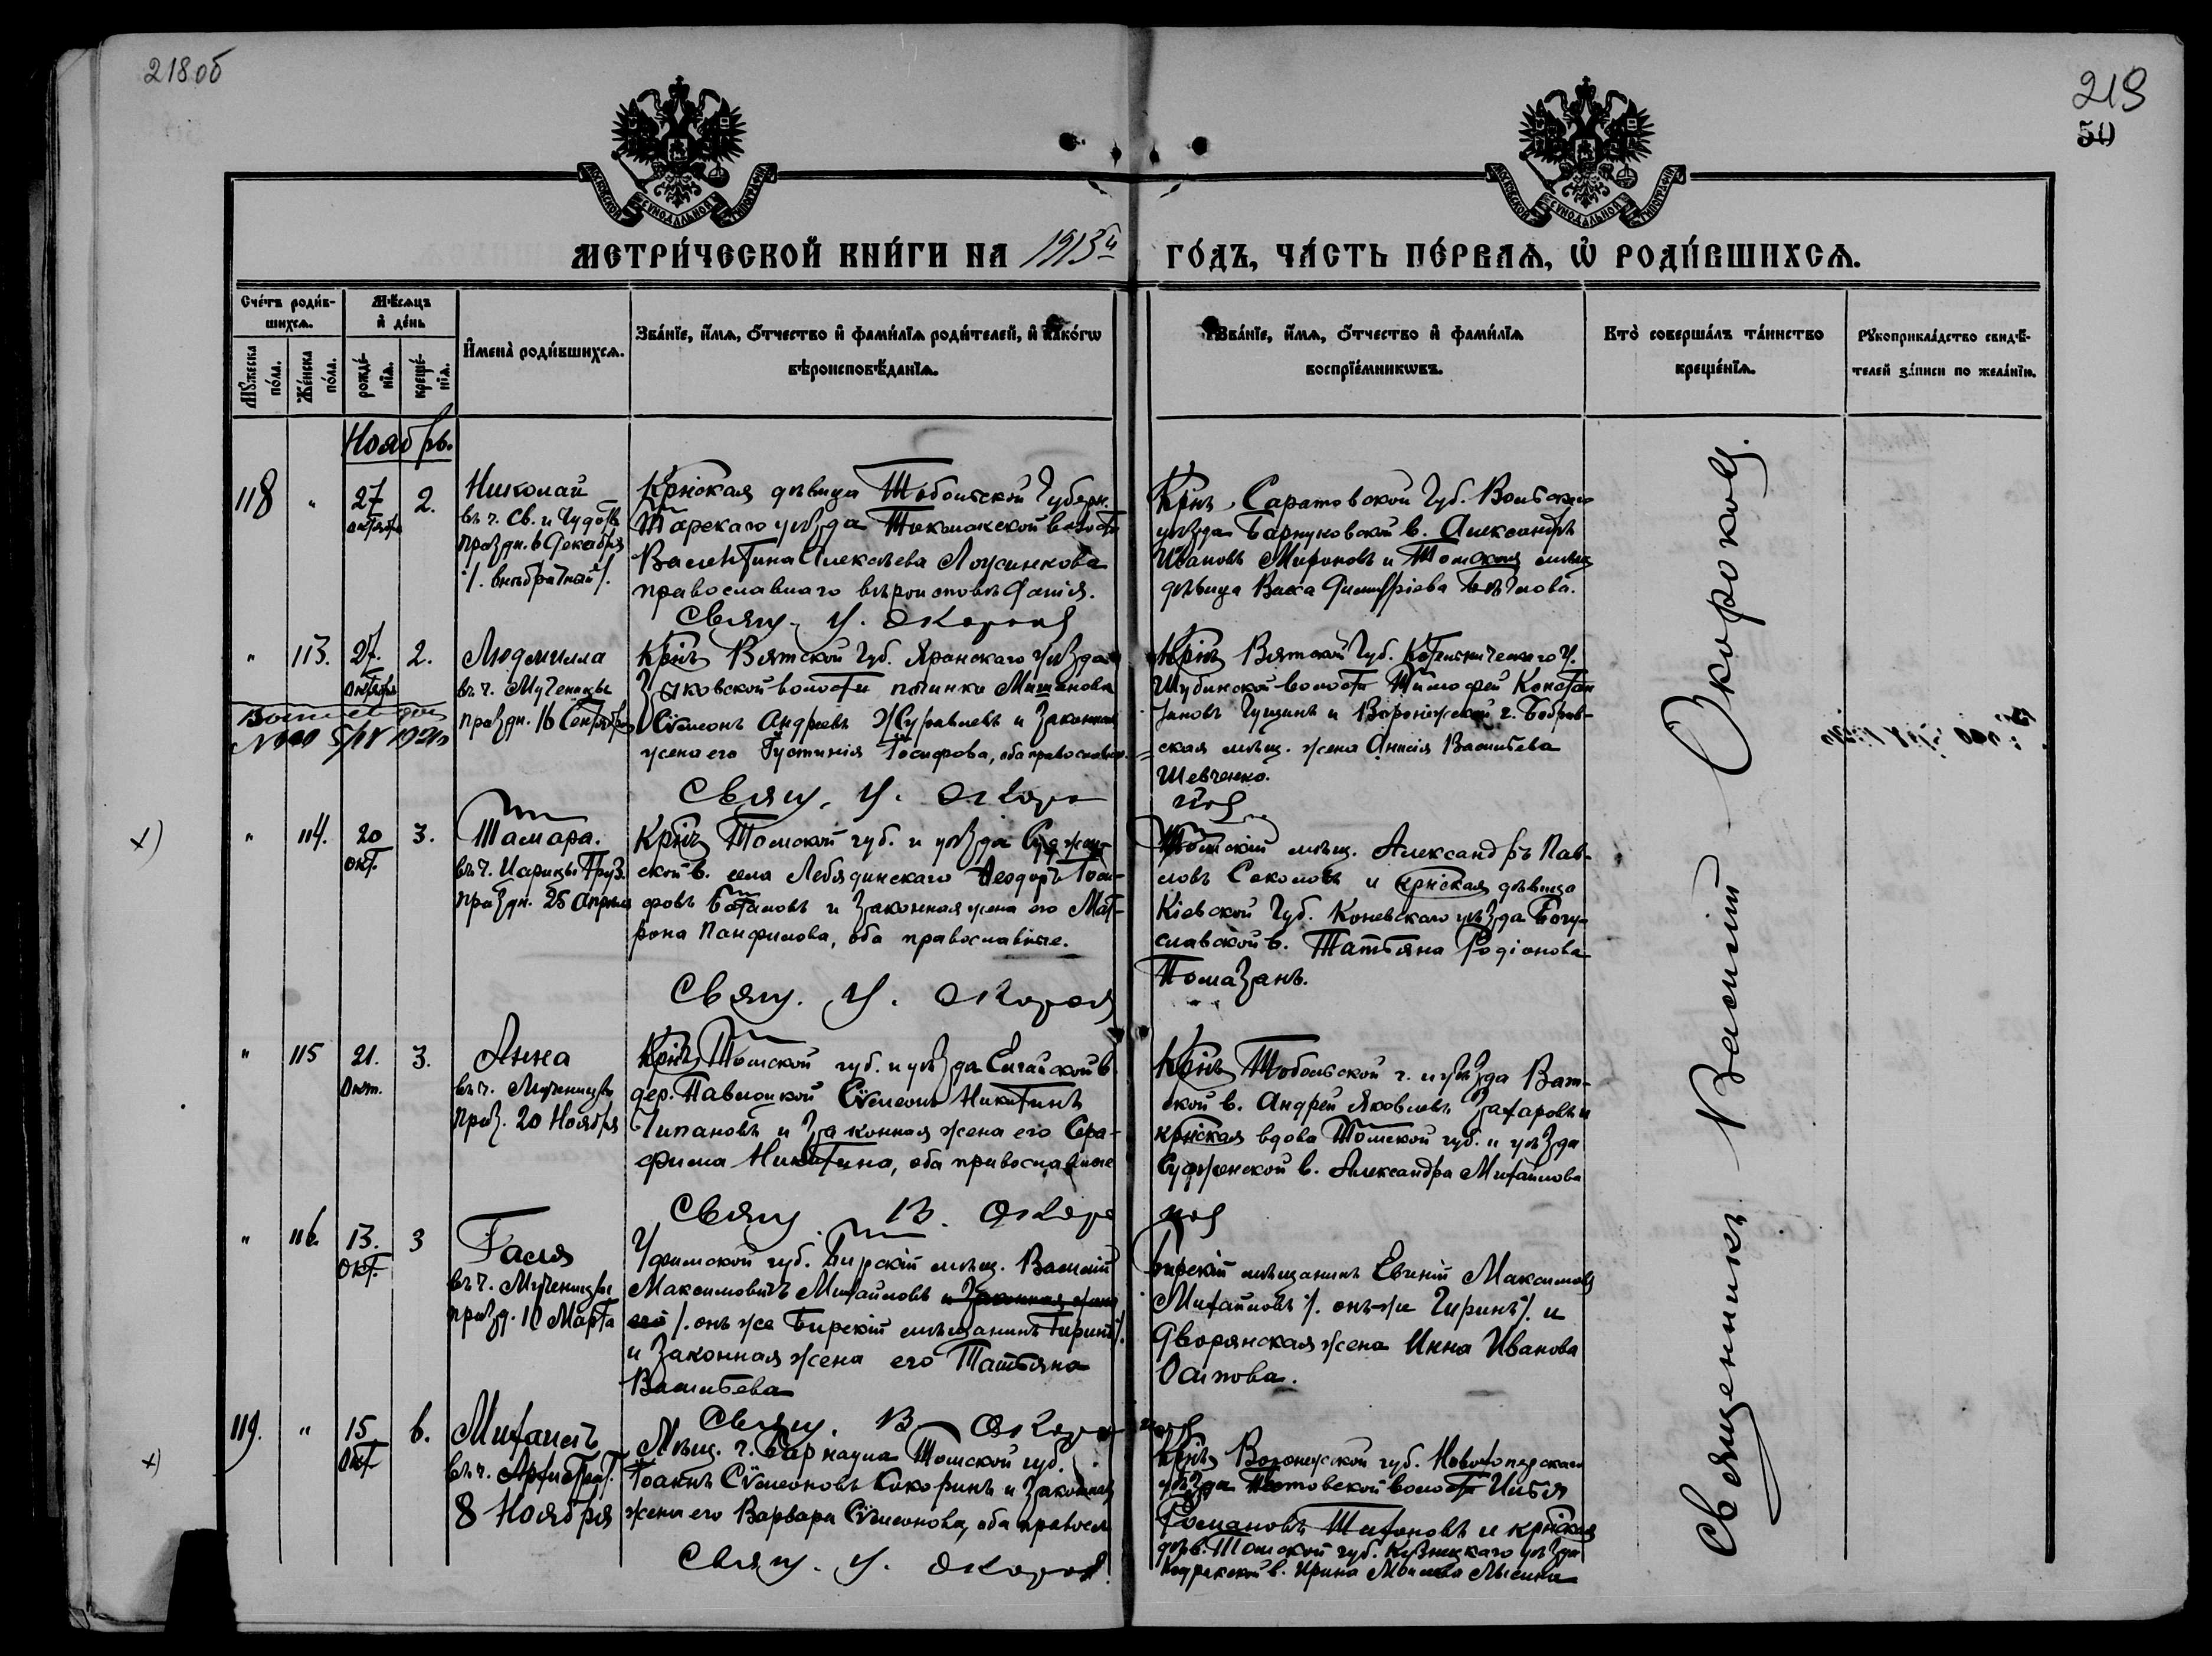 218об
219
50
МЕТРИЧЕСКОЙ КНИГИ НА 1913й ГОДЪ, ЧАСТЬ ПЕРВАЯ, Ѡ РОДИВШИХСЯ.
Счетъ родив-
шихся.
Мужеска
пола.
Женска
пола.
Мѣсяцъ
и день
рожде-
нія.
креще-
нія.
Имена родившихся.
Званіе, имя, отчество и фамилія родителей, и какогѡ
вѣроисповѣданія.
Званіе, имя, отчество и фамилія
воспріемниковъ.
Кто совершалъ таинство
крещенія.
Рукоприкладство свидѣ-
телей записи по желанію.
Ноябрь.
118 " 27 октября 2.
Николай
въ ч. Св. и Чудотв
праздн. 6 Декабря
/. внѣбрачный /.
Крнская дѣвица Тобольской Губерн.
Тарскаго уѣзда волости
Валентина Алексѣева Лоусикова
православнаго вѣроисповѣданія.
Свящ.
Крнъ Саратовской Губ. Вольскаго
уѣзда Барнуковской в. Александръ
Ивановъ Мироновъ и Томская мѣщ
дѣвица Васса Димитріева
" 113. 27. октября 2.
Людмилла
въ ч. Мученицы
праздн. 16 Сентября
Крнъ Вятской Губ. Яранскаго уѣзда
волости починка
Сѵмеонъ Андреевъ Журавлевъ и законная
жена его Іустинія Іосифова, оба православн.
Свящ.
Крнъ Вятской Губ. Котельническаго у.
Шубинской волости Тимофей Констан
тиновъ Гущинъ и Воронежской г. Бобров-
ская мѣщ. жена Анисія Васильева
Шевченко.
х)
" 114. 20 окт. 3.
Тамара.
въ ч. Царицы Груз.
праздн. 25 Апреля
Крнъ Томской губ. и уѣзда Суджен-
ской в. села Лебядинскаго Ѳеодоръ Іоси-
фовъ и законная жена его Мат-
рона Панфилова, оба православные.
Свящ.
Томскій мѣщ. Александръ Пав-
ловъ Соколовъ и крнская дѣвица
Кіевской Губ. Коневскаго уѣзда Богу-
славской в. Татьяна Родіонова
Помазанъ.
" 115 21. Окт. 3.
Анна
въ ч. Мученицы
празд. 20 Ноября
Крнъ Томской губ. и уѣзда в.
дер. Павлонской Сѵмеонъ Никитинъ
Чипановъ и законная жена его Сера-
фима Никитина, оба православные
Свящ. В.
Крнъ Тобольской г. и уѣзда
ской в. Андрей Яковлевъ Захаровъ и
крнская вдова Томской губ. и уѣзда
Судженской в. Александра Михайлова
" 116. 13. окт. 3
Галя
въ ч. Мученицы
празд. 10 Марта
Уфимской губ. Бирскій мѣщ. Василій
Максимовичъ Михайловъ и законная жена
его /. онъ же Бирскій мѣщанинъ Гиринъ /.
и законная жена его Татьяна
Васильева
Свящ. В.
Бирскій мѣщанинъ Евгеній Максимовъ
Михайловъ /. онъ-же Гиринъ /. и
дворянская жена Инна Иванова
Осипова.
х)
119. " 15 Окт 6.
Михаилъ
въ ч. Архистрат.
8 Ноября
Мѣщ. г. Барнаула Томской губ.
Іоаннъ Сѵмеоновъ Кокоринъ и законная
жена его Варвара Сѵмеонова, оба правосл
Свящ.
Крнъ Воронежской губ. Новохоперскаго
уѣзда волости Илья
Романовъ Тихоновъ и крнская
дѣв. Томской губ. Кузнецкаго уѣзда
в. Ирина
Священникъ Василій Окороковъ.